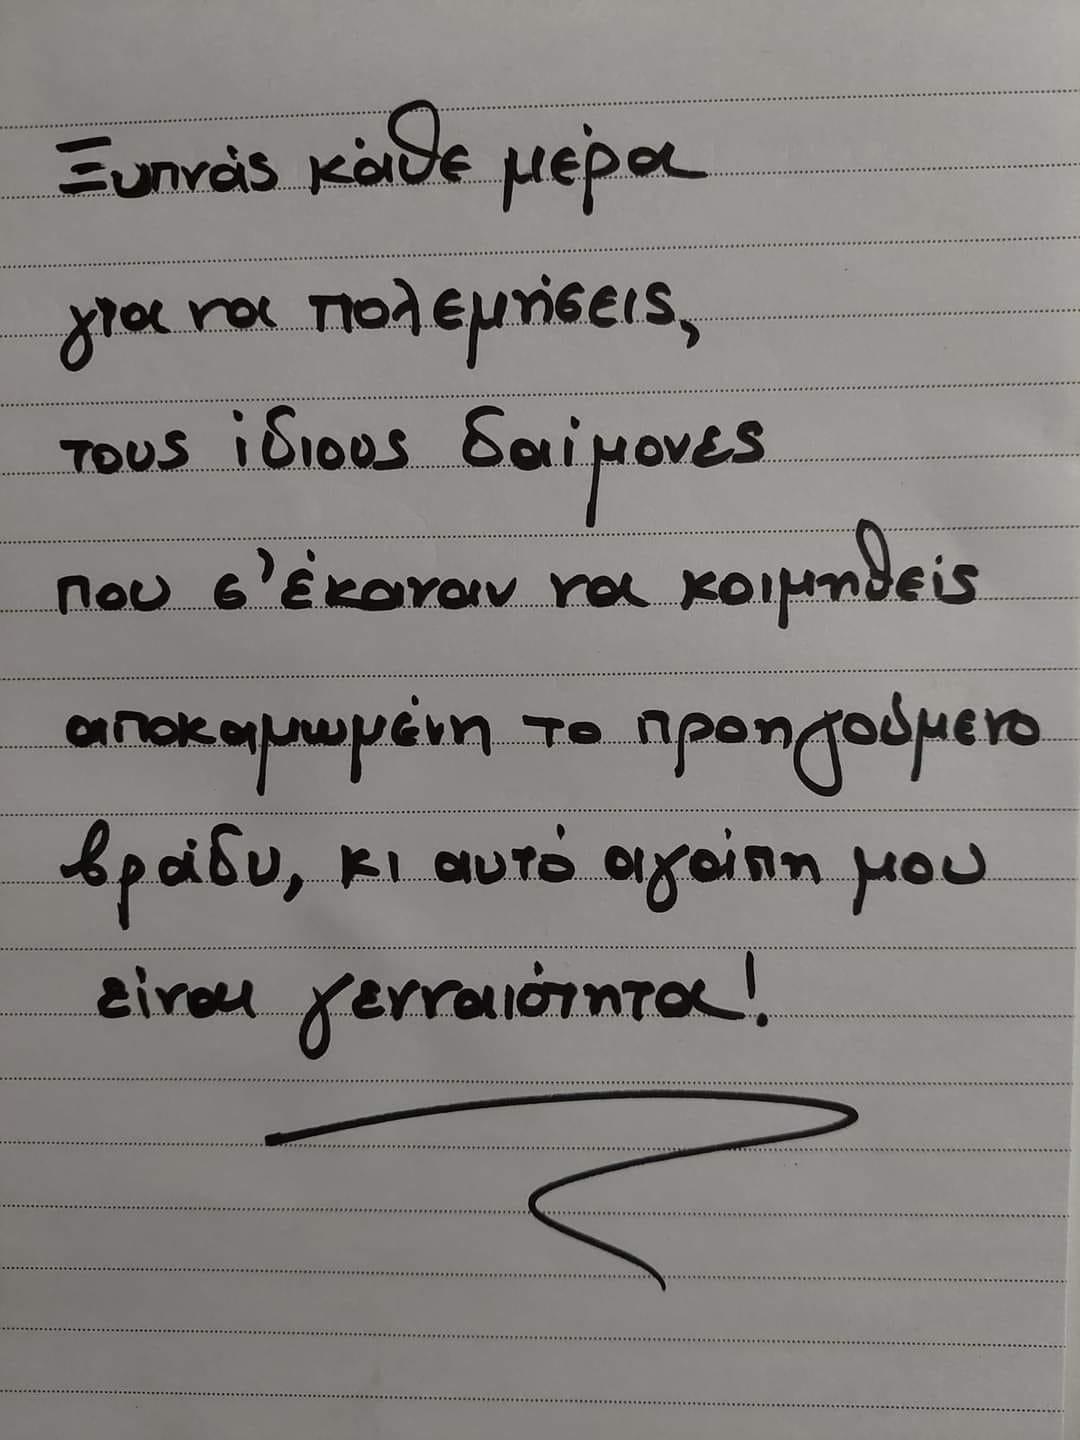 Ξυπνάς κάθε μέρα
για να πολεμήσεις,
τους ίδιους δαίμονες
που σ'έκαναν να κοιμηθείς
αποκαμωμένη το προηγούμενο
βράδυ, κι αυτό αγάπη μου
είναι γενναιότητα!